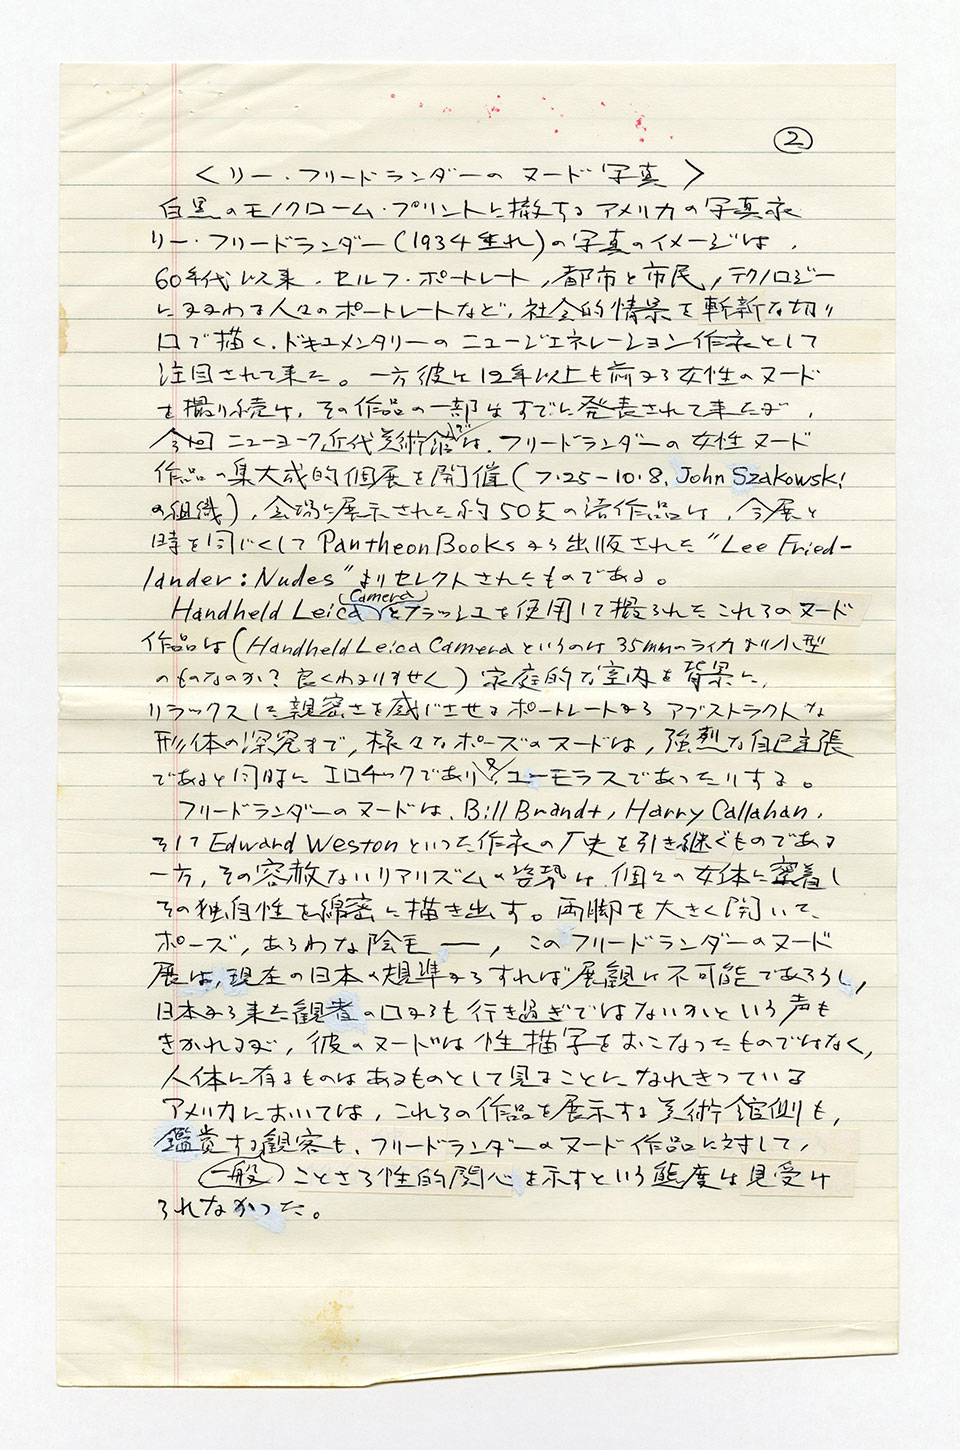 ②
<リー・フリードランダーの ヌード写真>
白黒のモノクローム・プリントに撤するアメリカの写真家
リー・フリードランダー(1934生れ)の写真のイメージは、
60年代以来、セルフ・ポートレート,都市と市民,テクノロジー
にまつわる人々のポートレートなど、社会的情景を斬新な切り
口で描く、ドキュメンタリーのニュージェネレーション作家として
注目されて来た。一方彼は12年以上も前から女性のヌード
を撮り続け、その作品の一部はすでに発表されて来たが、
今回ニューヨーク近代美術館では、フリードランダーの女性ヌード
作品の集大成的個展を開催(7・25-10・8、John Szakowski
の組織)、会場に展示された約50点の諸作品は、今展と
時を同じくして Pantheon Booksから出版された"Lee Fried-
lander: Nudes"よりセレクトされたものである。
Handheld Leica (Camera)とフラッシュを使用して撮られたこれらのヌード
作品は(Handheld Leica Cameraというのは35mmのライカより小型
のものなのか?良くわかりません)家庭的な室内を背景に、
リラックスした親密さを感じさせるポートレートから アブストラクトな
形体の深究まで、様々なポーズのヌードは,強烈な自己主張
であると同時に エロチックであり又、ユーモラスであったりする。
フリードランダーのヌードは、Bill Brandt, Harry Callahan,
そして Edward Westonといった作家の歴史を引き継ぐものである
一方,その容赦ないリアリズムの姿勢は、個々の女体に密着し
その独自性を綿密に描き出す。両脚を大きく開いて、
ポーズ,あらわな陰毛ー,このフリードランダーのヌード
展は,現在の日本の規準からすれば展観は不可能であろうし,
日本から来た観者の口からも行き過ぎではないかという声も
きかれるが,彼のヌードは性描写をおこなったものではなく,
人体に有るものはあるものとして見ることになれきっている
アメリカにおいては,これらの作品を展示する美術館側も,
鑑賞する観客も、フリードランダーのヌード作品に対して,
一般 ことさら性的関心を示すという態度は見受け
られなかった。